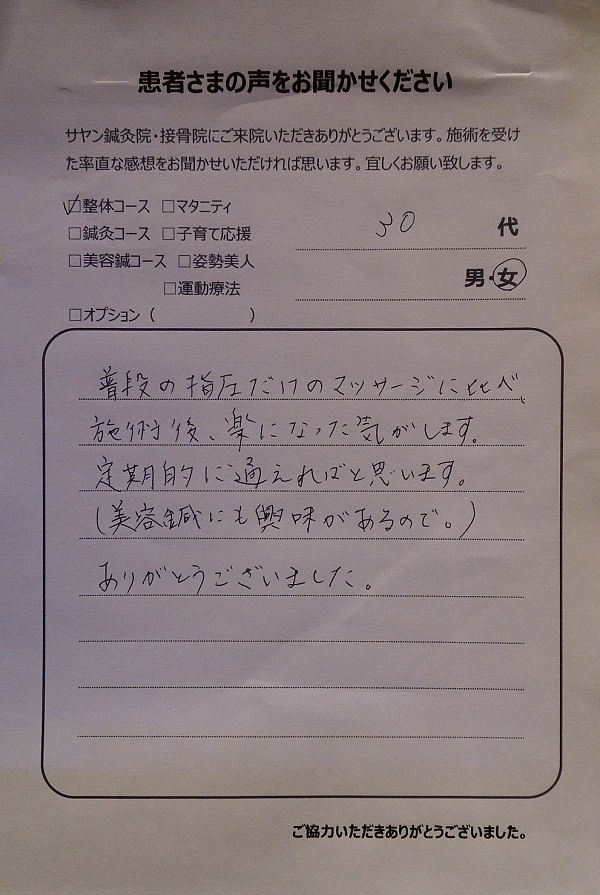 患者さまの声をお聞かせください
サヤン鍼灸院・接骨院にご来院いただきありがとうございます。施術を受け
た率直な感想をお聞かせいただければ思います。宜しくお願い致します。
☑整体コース □マタニティ
30 代
□鍼灸コース □子育て応援
□美容鍼コース □姿勢美人
男・女
□運動療法
□オプション ( )
普段の指圧だけのマッサージに比べ、
施術後、楽になった気がします。
定期的に通えればと思います。
(美容鍼にも興味があるので。)
ありがとうございました。
ご協力いただきありがとうございました。